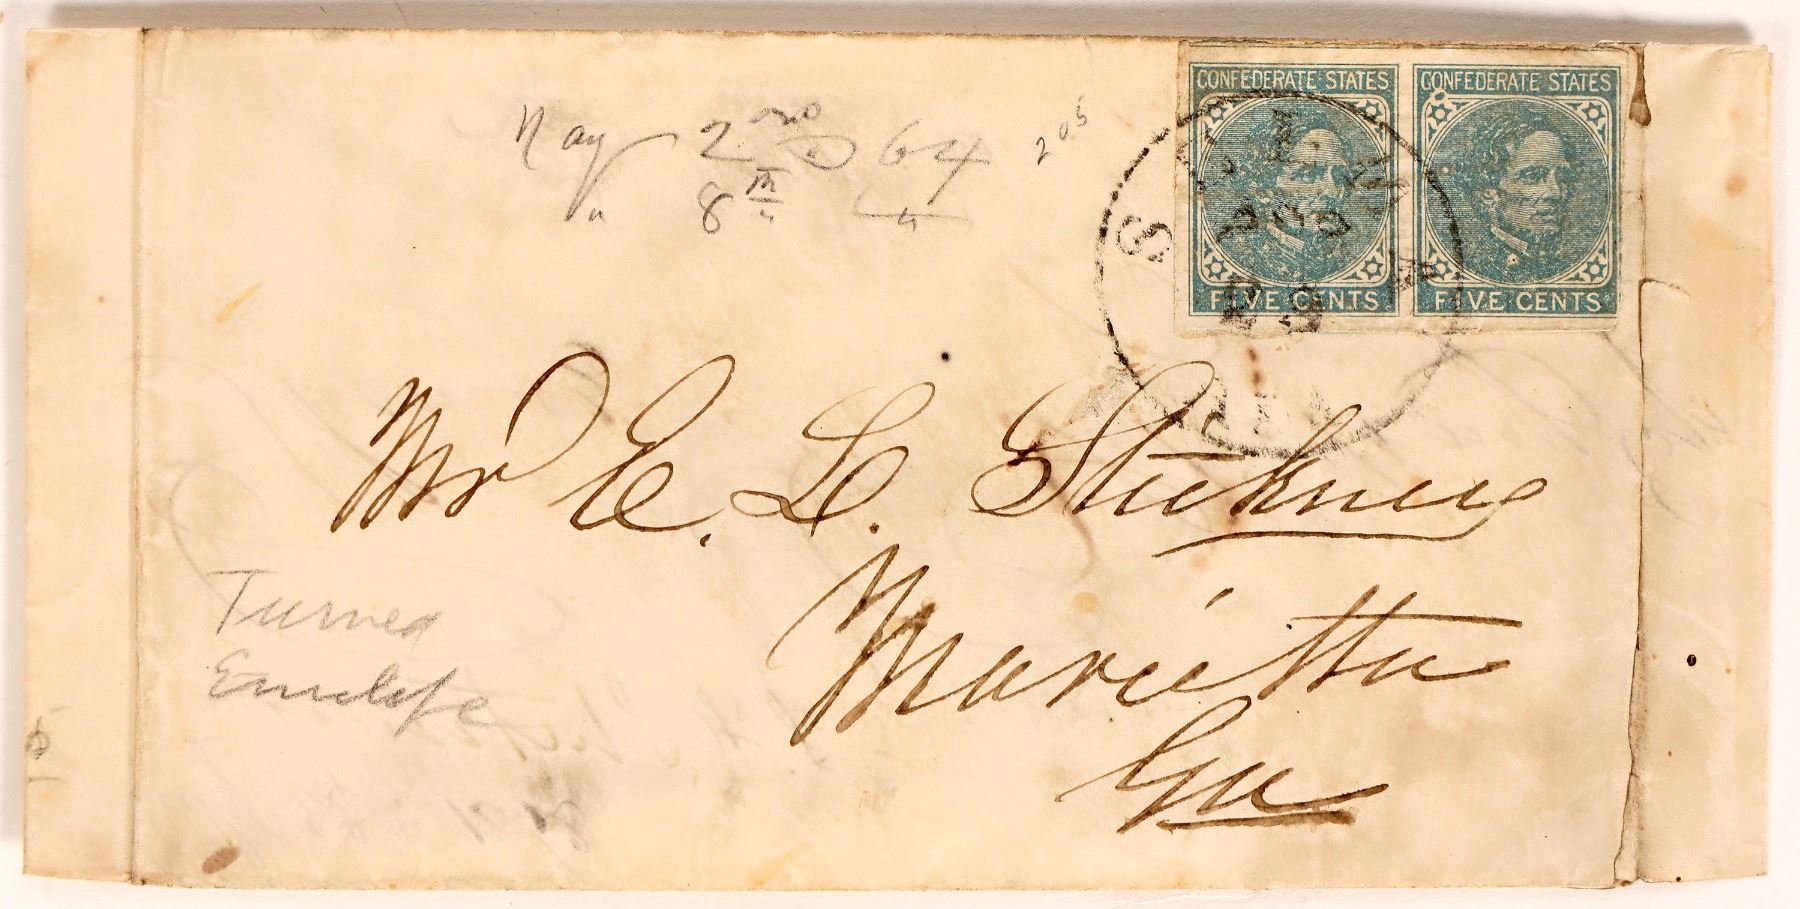 CONFEDERATE STATES
CONFEDERATE STATES
FIVE CENTS
FIVE CENTS
May 2nd 64
" 8th "
205
Mr E. L. Stickney
Marietta
Ga
Turned
Envelope